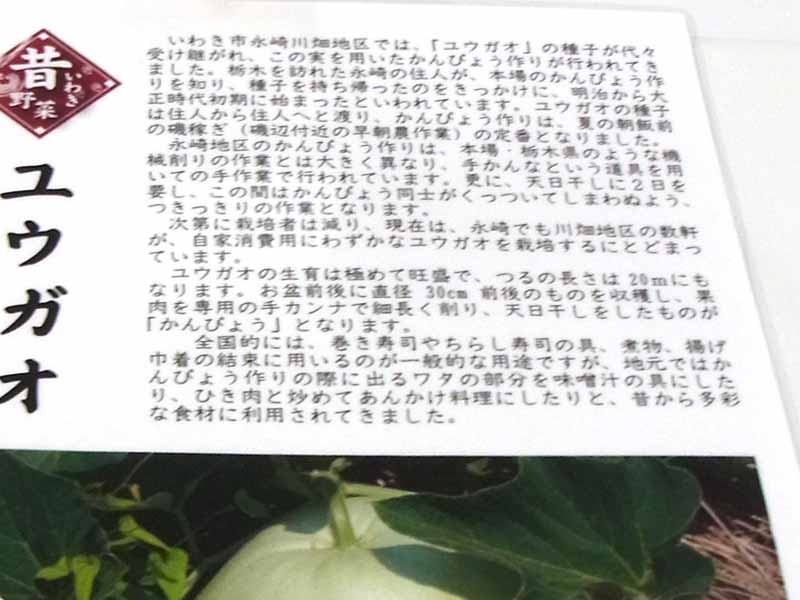 昔
いわき
野菜
ユウガオ
いわき市永崎川畑地区では、「ユウガオ」の種子が代々
受け継がれ、この実を用いたかんぴょう作りが行われてき
ました。栃木を訪れた永崎の住人が、本場のかんぴょう作
りを知り、種子を持ち帰ったのをきっかけに、明治から大
正時代初期に始まったといわれています。ユウガオの種子
は住人から住人へと渡り、かんぴょう作りは、夏の朝飯前
の磯稼ぎ（磯辺付近の早朝農作業）の定番となりました。
永崎地区のかんぴょう作りは、本場・栃木県のような機
械削りの作業とは大きく異なり、手かんなという道具を用
いての手作業で行われています。更に、天日干しに２日を
要し、この間はかんぴょう同士がくっついてしまわぬよう、
つきっきりの作業となります。
次第に栽培者は減り、現在は、永崎でも川畑地区の数軒
が、自家消費用にわずかなユウガオを栽培するにとどまっ
ています。
ユウガオの生育は極めて旺盛で、つるの長さは 20ｍにも
なります。お盆前後に直径 30cm 前後のものを収穫し、果
肉を専用の手カンナで細長く削り、天日干しをしたものが
「かんぴょう」となります。
全国的には、巻き寿司やちらし寿司の具、煮物、揚げ
巾着の結束に用いるのが一般的な用途ですが、地元ではか
んぴょう作りの際に出るワタの部分を味噌汁の具にした
り、ひき肉と炒めてあんかけ料理にしたりと、昔から多彩
な食材に利用されてきました。